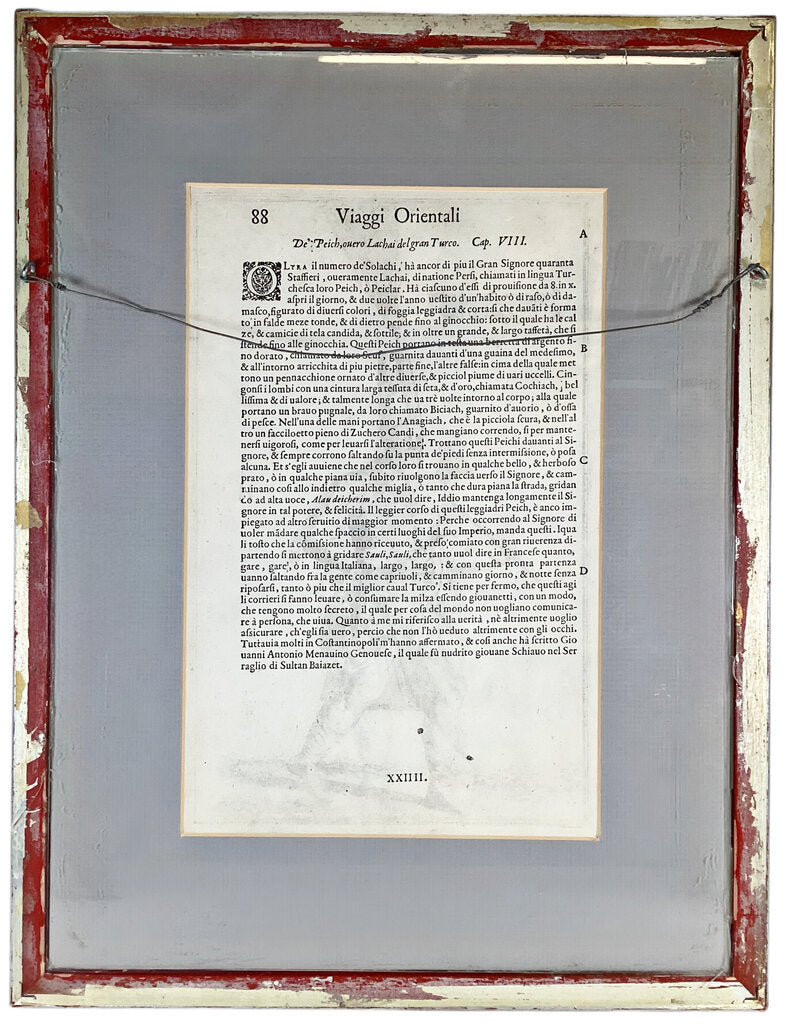 88 Viaggi Orientali
De' Peich, ouero Lachai del gran Turco. Cap. VIII.
A
OLTRA il numero de'Solachi, hà ancor di piu il Gran Signore quaranta
Staffieri, oueramente Lachai, di natione Persi, chiamati in lingua Tur-
chesca loro Peich, ò Peiclar. Hà ciascuno d'essi di prouisione da 8. in x.
aspri il giorno, & due uolte l'anno uestito d'un'habito ò di raso, ò di da-
masco, figurato di diuersi colori, di foggia leggiadra & corta: si che dauāti è forma
to in falde meze tonde, & di dietro pende fino al ginocchio: sotto il quale ha le cal
ze, & camicie di tela candida, & sottile; & in oltre un grande, & largo taffetà, che si
stende fino alle ginocchia. Questi Peich portano in testa una berretta di argento fi-
B
no dorato, chiamato da loro Scuf, guarnita dauanti d'una guaina del medesimo,
& all'intorno arricchita di piu pietre, parte fine, l'altre false: in cima della quale met
tono un pennacchione ornato d'altre diuerse, & picciol piume di uari uccelli. Cin-
gonsi i lombi con una cintura larga tessuta di seta, & d'oro, chiamata Cochiach, bel
lissima & di ualore; & talmente longa che ua trè uolte intorno al corpo; alla quale
portano un brauo pugnale, da loro chiamato Biciach, guarnito d'auorio, ò d'ossa
di pesce. Nell'una delle mani portano l'Anagiach, che è la picciola scura, & nell'al
tro un faccioletto pieno di Zuchero Candi, che mangiano correndo, si per mante-
nersi uigorosi, come per leuarsi l'alteratione. Trottano questi Peichi dauanti al Si-
gnore, & sempre corrono saltando su la punta de'piedi senza intermissione, ò posa
C
alcuna. Et s'egli auuiene che nel corso loro si trouano in qualche bello, & herboso
prato, ò in qualche piana uia, subito riuolgono la faccia uerso il Signore, & cam-
minano cosi allo indietro qualche miglia, ò tanto che dura piana la strada, gridan
do ad alta uoce, Alau deicherim, che uuol dire, Iddio mantenga longamente il Si-
gnore in tal potere, & felicità. Il leggier corso di questi leggiadri Peich, è anco im-
piegato ad altro seruitio di maggior momento: Perche occorrendo al Signore di
uoler mādare qualche spaccio in certi luoghi del suo Imperio, manda questi. I qua
li tosto che la cōmissione hanno riceuuto, & preso comiato con gran riuerenza di-
partendo si mettono à gridare Sauli, Sauli, che tanto uuol dire in Francese quanto,
gare, gare, ò in lingua Italiana, largo, largo,: & con questa pronta partenza
D
uanno saltando fra la gente come capriuoli, & camminano giorno, & notte senza
riposarsi, tanto ò piu che il miglior caual Turco. Si tiene per fermo, che questi agi
li corrieri si fanno leuare, ò consumare la milza essendo giouanetti, con un modo,
che tengono molto secreto, il quale per cosa del mondo non uogliano comunica-
re à persona, che uiua. Quanto à me mi riferisco alla uerità, nè altrimente uoglio
assicurare, ch'egli sia uero, percio che non l'hò ueduto altrimente con gli occhi.
Tuttauia molti in Costantinopoli m'hanno affermato, & cosi anche hà scritto Gio
uanni Antonio Menauino Genouese, il quale fù nudrito giouane Schiauo nel Ser
raglio di Sultan Baiazet.
XXIIII.